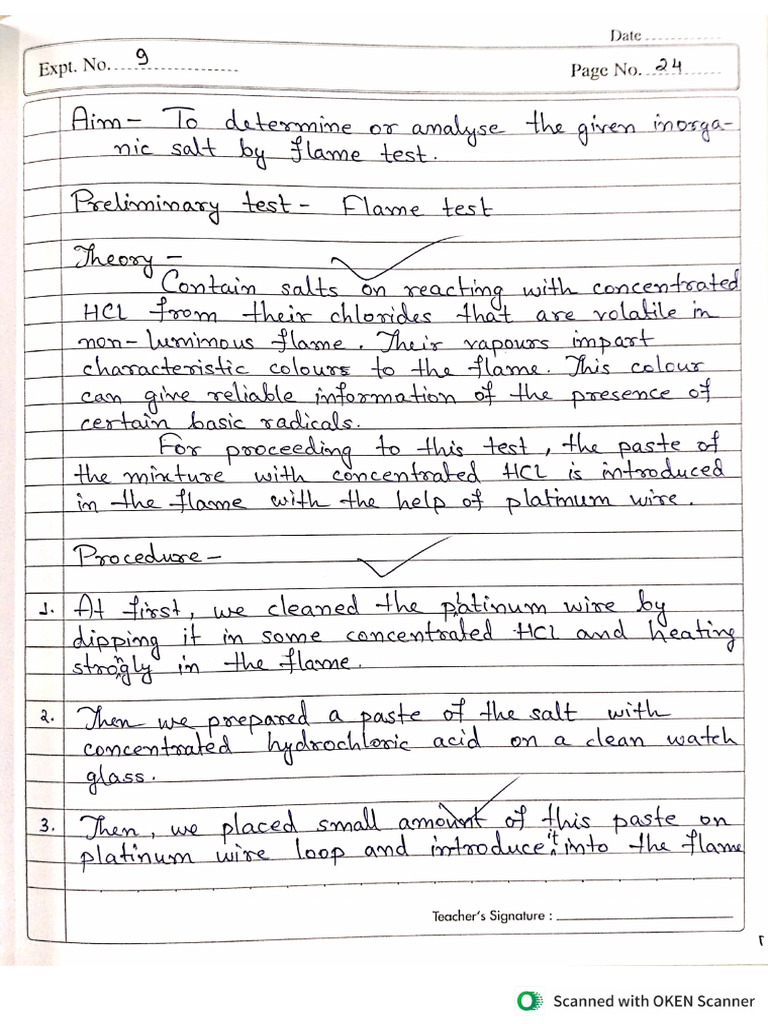 Date ............
Expt. No. 9
Page No. 24
Aim - To determine or analyse the given inorga-
nic salt by flame test.
Preliminary test - Flame test
Theory -
Contain salts on reacting with concentrated
HCl from their chlorides that are volatile in
non-lumimous flame. Their vapours impart
characteristic colours to the flame. This colour
can give reliable information of the presence of
certain basic radicals.
For proceeding to this test, the paste of
the mixture with concentrated HCl is introduced
in the flame with the help of platinum wire.
Procedure -
1. At first, we cleaned the platinum wire by
dipping it in some concentrated HCl and heating
strongly in the flame.
2. Then we prepared a paste of the salt with
concentrated hydrochloric acid on a clean watch
glass.
3. Then, we placed small amount of this paste on
platinum wire loop and introduce it into the flame
Teacher's Signature :
Scanned with OKEN Scanner